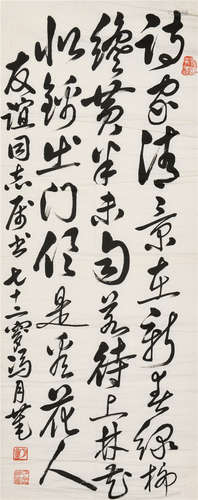 诗家清景在新春绿柳
才黄半未匀若待上林花
似锦出门俱是看花人
友谊同志属书 七十二叟冯月庵